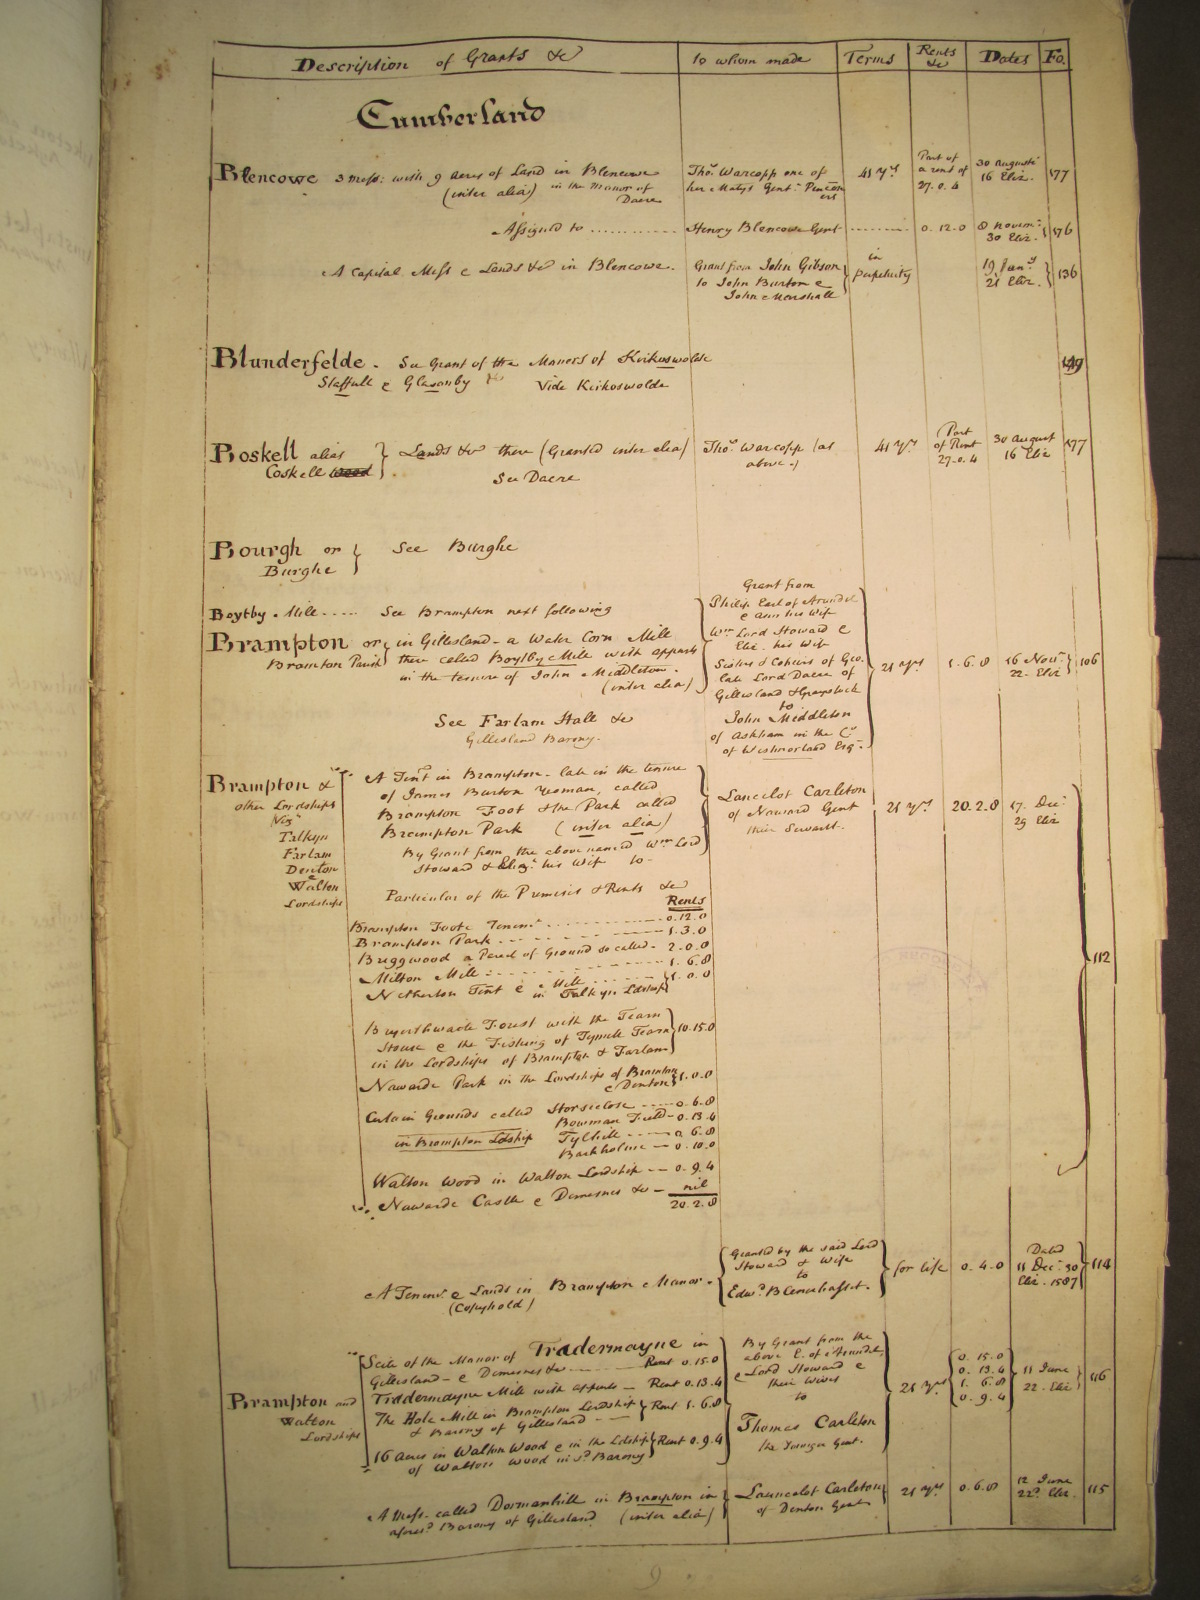 Description of Grants &c to whom made Terms Rents &c Dates Fo.
Cumberland
Blencowe 3 Mess: with 9 acres of Land in Blencowe
(inter alia) in the Manor of
Dacre
Thos Warcopp one of
her Matys Gent:
41 yrs
Part of
a rent of
27. 0. 4
30 August
16 Eliz.
177
Assigned to ............ Henry Blencowe Gent ......... 0. 12. 0
8 Novem:
30 Eliz.
176
A Capital Mess & Lands &c in Blencowe.
Grant from John Gibson
to John Burton &
John Marshall
in
perpetuity
19 Jany
21 Eliz.
136
Blunderfelde. See Grant of the Manors of Kirkoswolde
Staffull & Glasonby Vide Kirkoswolde
149
Boskell alias
Coskell
Lands &c there (Granted inter alia)
See Dacre
Thos Warcopp (as
above.)
41 yrs
Part
of Rent
27. 0. 4
30 August
16 Eliz
177
Bourgh or
Burghe
See Burghe
Boytby Mill ..... See Brampton next following
Brampton or
Bramton Parish
in Gillesland - a Water Corn Mill
there called Boytby Mill with appurts
in the tenure of John Middleton.
(inter alia)
See Farlam Hall &c
Gillesland Barony.
Grant from
Philip Earl of Arundel
& Ann his Wife
Wm Lord Howard &
Eliz. his Wife
Sisters & Coheirs of Geo.
late Lord Dacre of
Gillesland & Graystock
to
John Middleton
of Askham in the Co
of Westmorland Esqr
21 yrs
1. 6. 8
16 Novr
22 Eliz
106
Brampton &
other Lordships
Vizt
Talkyn
Farlam
Denton
&
Walton
Lordships
A Tent in Brampton - late in the tenure
of James Burton Yeoman, called
Brampton Foot & the Park called
Brampton Park (inter alia)
By Grant from the abovenamed Wm Lord
Howard & Eliz. his Wife to -
Lancelot Carleton
of Naward Gent
their Servant.
21 yrs
20. 2. 8
17. Dec:
29 Eliz
112
Particular of the Premises & Rents &c
Rents
Brampton Foote Tenemt ......... 0. 12. 0
Brampton Park ......... 1. 3. 0
Briggwood a Parcel of Ground so called - 2. 0. 0
Milton Mill ......... 1. 6. 8
Netherton Tent & Mill
in Talkyn Ldship 1. 0. 0
Forest with the Tearn
House & the Fishing of Tyndle Tearn
in the Lordships of Brampton & Farlam
10. 15. 0
Nawarde Park in the Lordships of Bramton
& Denton 1. 0. 0
Certain Grounds called Horseclose ---- 0. 6. 8
Bowman Field - 0. 13. 4
in Brampton Ldship Tylhill ---- 0. 6. 8
Barkholme -- 0. 10. 0
Walton Wood in Walton Lordship -- 0. 9. 4
Nawarde Castle & Demesnes &c - nil
20. 2. 8
A Tenemt & Lands in Brampton Manor.
(Copyhold)
Granted by the said Lord
Howard & Wife
to
Edwd Blenerhasset.
for life
0. 4. 0
Dated
11 Dec: 30
Eliz. 1587
114
Brampton and
Walton
Lordships
Scite of the Manor of Tradermayne in
Gillesland - & Demesnes &c ---- Rent 0. 15. 0
Tradermayne Mill with appurts - Rent 0. 13. 4
The Hole Mill in Brampton Lordship
& Barony of Gillesland -- Rent 1. 6. 8
16 Acres in Walton Wood & in the Ldship
of Walton Wood in sd Barony Rent 0. 9. 4
By Grant from the
above E. of Arundel,
& Lord Howard &
their Wives
to
Thomas Carleton
the Younger Gent.
21 yrs
0. 15. 0
0. 13. 4
1. 6. 8
0. 9. 4
11 June
22. Eliz
116
A Mess. called Dormanhill in Brampton in
aforesd Barony of Gillesland (inter alia)
Launcelot Carleton
of Denton Gent
21 yrs
0. 6. 8
12 June
22d Eliz.
115
9